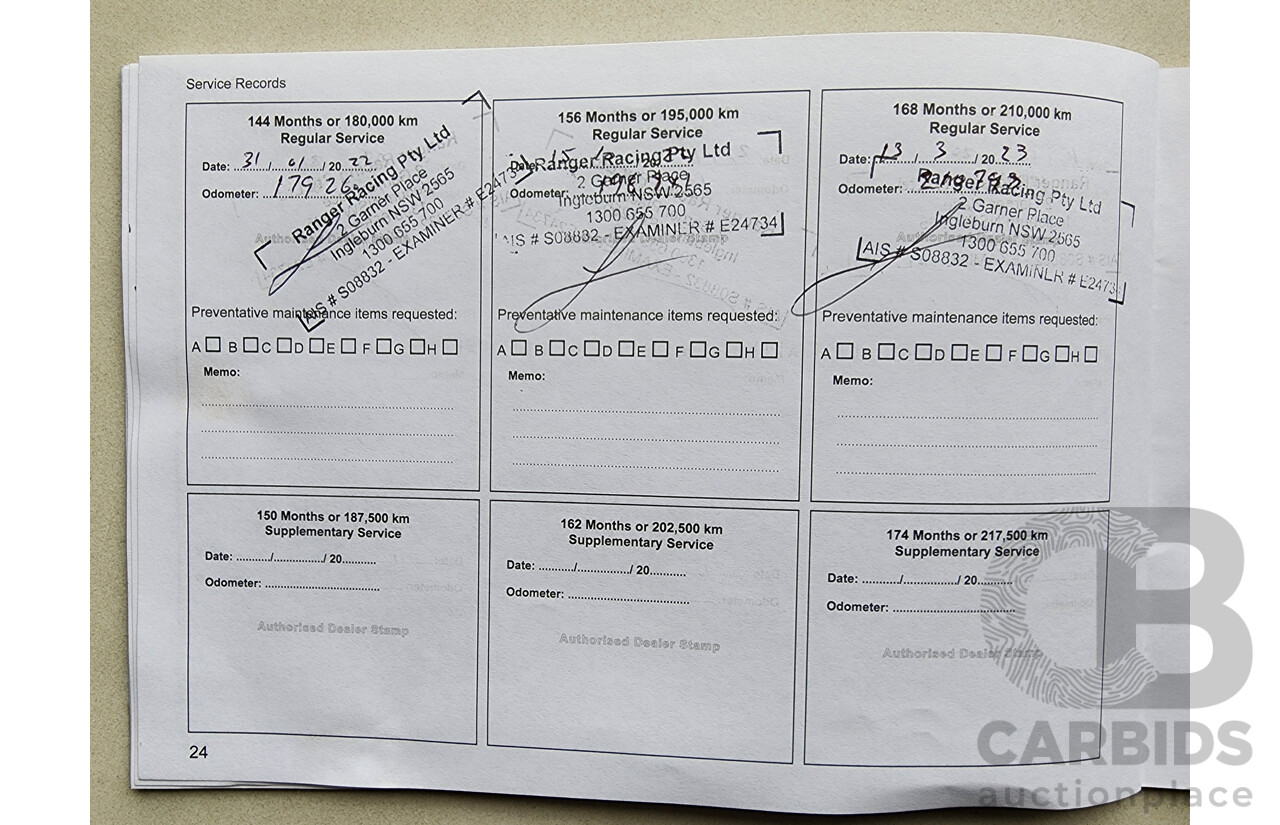 Service Records
144 Months or 180,000 km
Regular Service
Date: 31/01/2022
Odometer:
Ranger Racing Pty Ltd
2 Garner Place
Ingleburn NSW 2565
1300 655 700
AIS # S08832 - EXAMINER # E24734
Preventative maintenance items requested:
A B C D E F G H
Memo:
156 Months or 195,000 km
Regular Service
Date:
Odometer:
Ranger Racing Pty Ltd
2 Garner Place
Ingleburn NSW 2565
1300 655 700
AIS # S08832 - EXAMINER # E24734
Preventative maintenance items requested:
A B C D E F G H
Memo:
168 Months or 210,000 km
Regular Service
Date: 13/3/2023
Odometer:
Ranger Racing Pty Ltd
2 Garner Place
Ingleburn NSW 2565
1300 655 700
AIS # S08832 - EXAMINER # E2473
Authorised Dealer Stamp
Preventative maintenance items requested:
A B C D E F G H
Memo:
150 Months or 187,500 km
Supplementary Service
Date: ........../............../ 20..........
Odometer: ..................................
Authorised Dealer Stamp
162 Months or 202,500 km
Supplementary Service
Date: ........../............../ 20..........
Odometer: ..................................
Authorised Dealer Stamp
174 Months or 217,500 km
Supplementary Service
Date: ........../............../ 20..........
Odometer: ..................................
Authorised Dealer Stamp
24
CB
CARBIDS
auctionplace